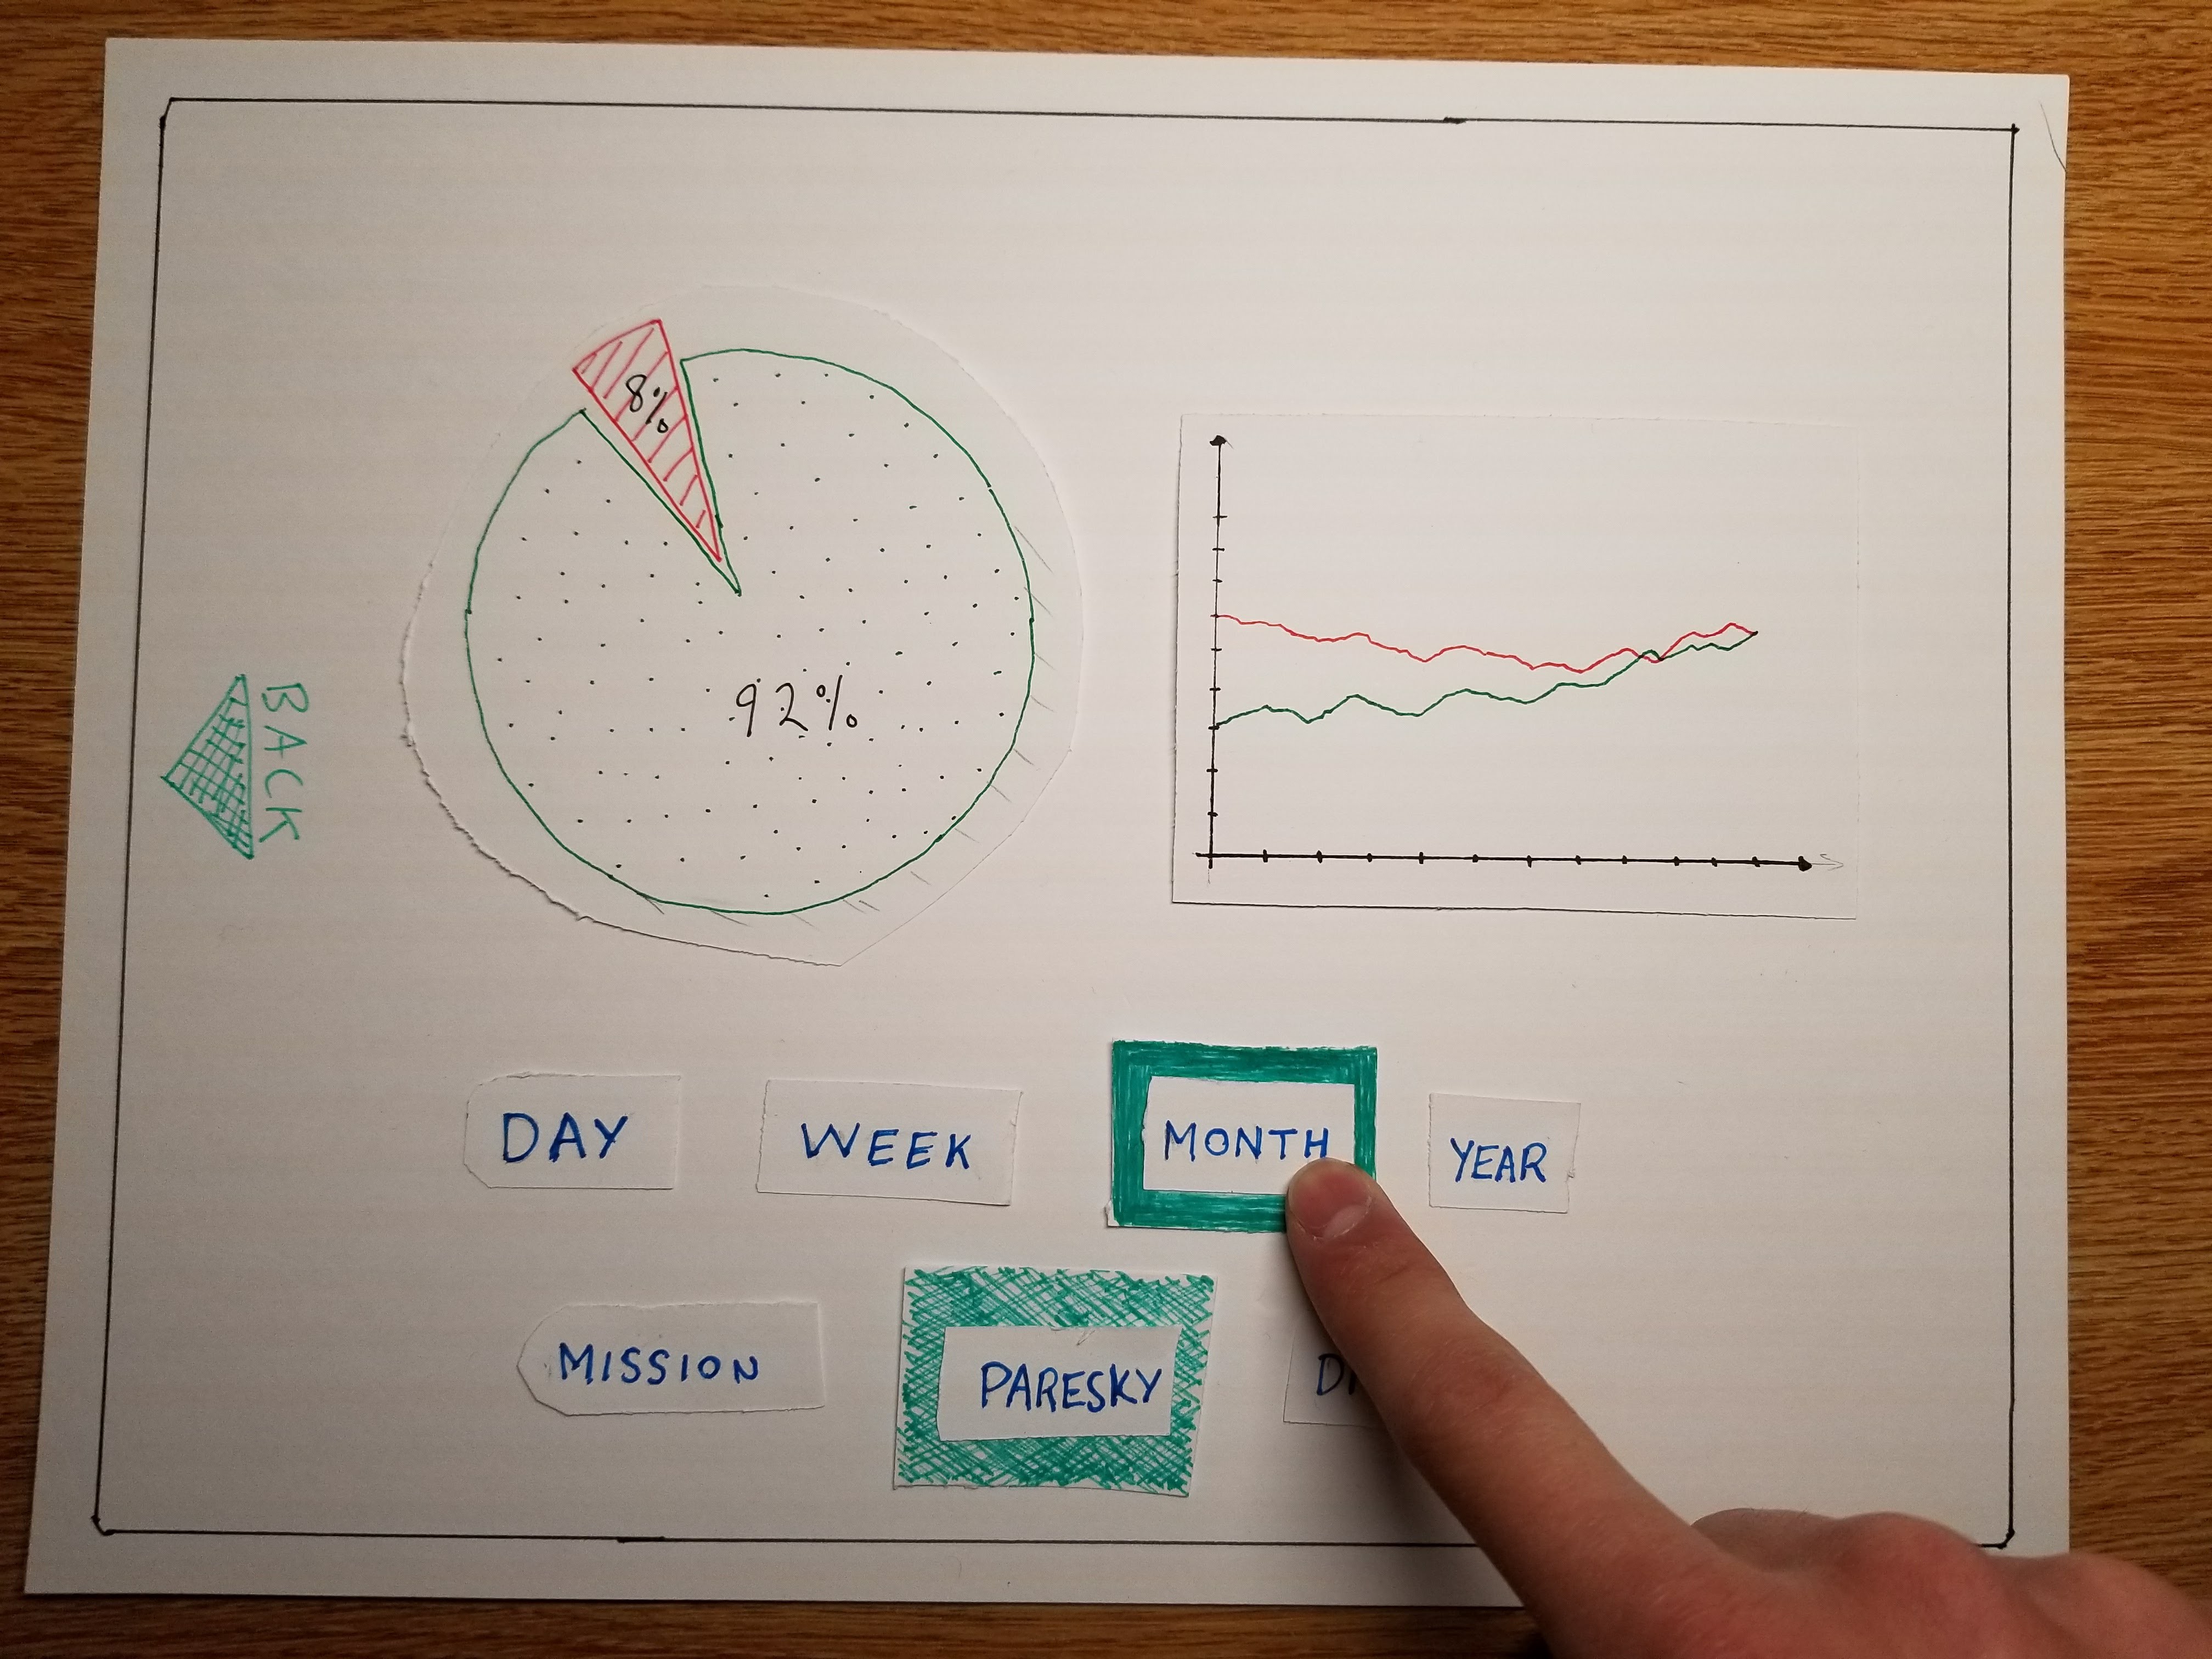 8%
92%
BACK
DAY WEEK MONTH YEAR
MISSION PARESKY